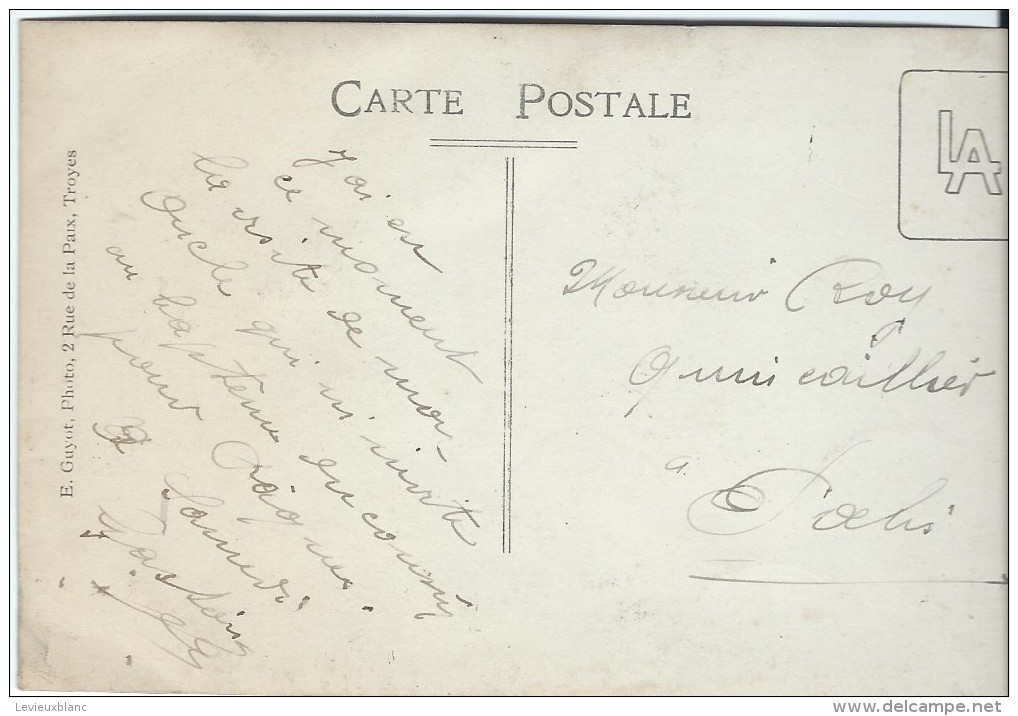 CARTE POSTALE
LA
E. Guyot, Photo, 2 Rue de la Paix, Troyes
J'ai en
ce moment
la visite de mon
oncle qui m'invite
au baptême du cousin
pour Pâques.
A Samedi.
Monsieur Roy
Quincaillier
à
Palis
Levieuxblanc
www.delcampe.net